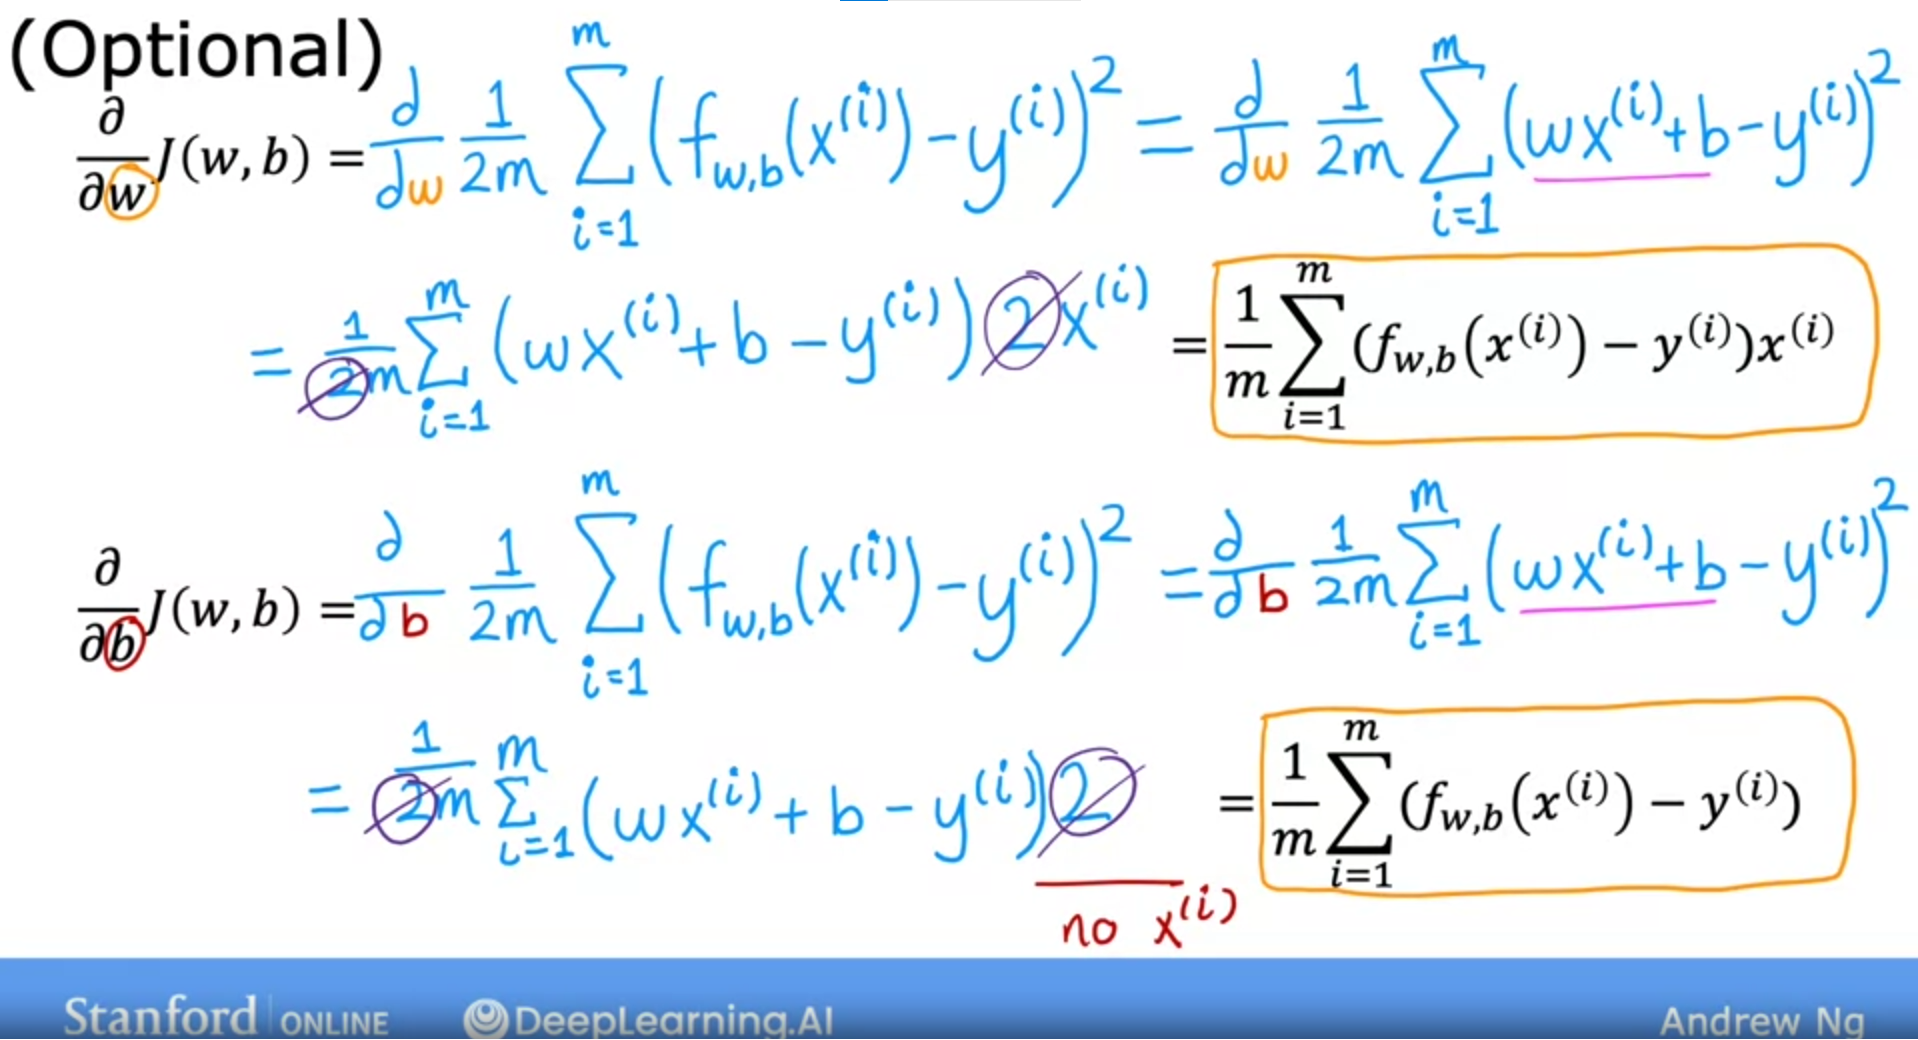 (Optional)
∂/∂w J(w, b) = ∂/∂w 1/2m ∑_{i=1}^{m} (f_{w,b}(x^{(i)}) - y^{(i)})^2 = ∂/∂w 1/2m ∑_{i=1}^{m} (wx^{(i)} + b - y^{(i)})^2
= 1/2m ∑_{i=1}^{m} (wx^{(i)} + b - y^{(i)}) 2x^{(i)} = 1/m ∑_{i=1}^{m} (f_{w,b}(x^{(i)}) − y^{(i)})x^{(i)}
∂/∂b J(w, b) = ∂/∂b 1/2m ∑_{i=1}^{m} (f_{w,b}(x^{(i)}) - y^{(i)})^2 = ∂/∂b 1/2m ∑_{i=1}^{m} (wx^{(i)} + b - y^{(i)})^2
= 1/2m ∑_{i=1}^{m} (wx^{(i)} + b - y^{(i)}) 2 = 1/m ∑_{i=1}^{m} (f_{w,b}(x^{(i)}) − y^{(i)})
no x^{(i)}
Stanford ONLINE DeepLearning.AI Andrew Ng